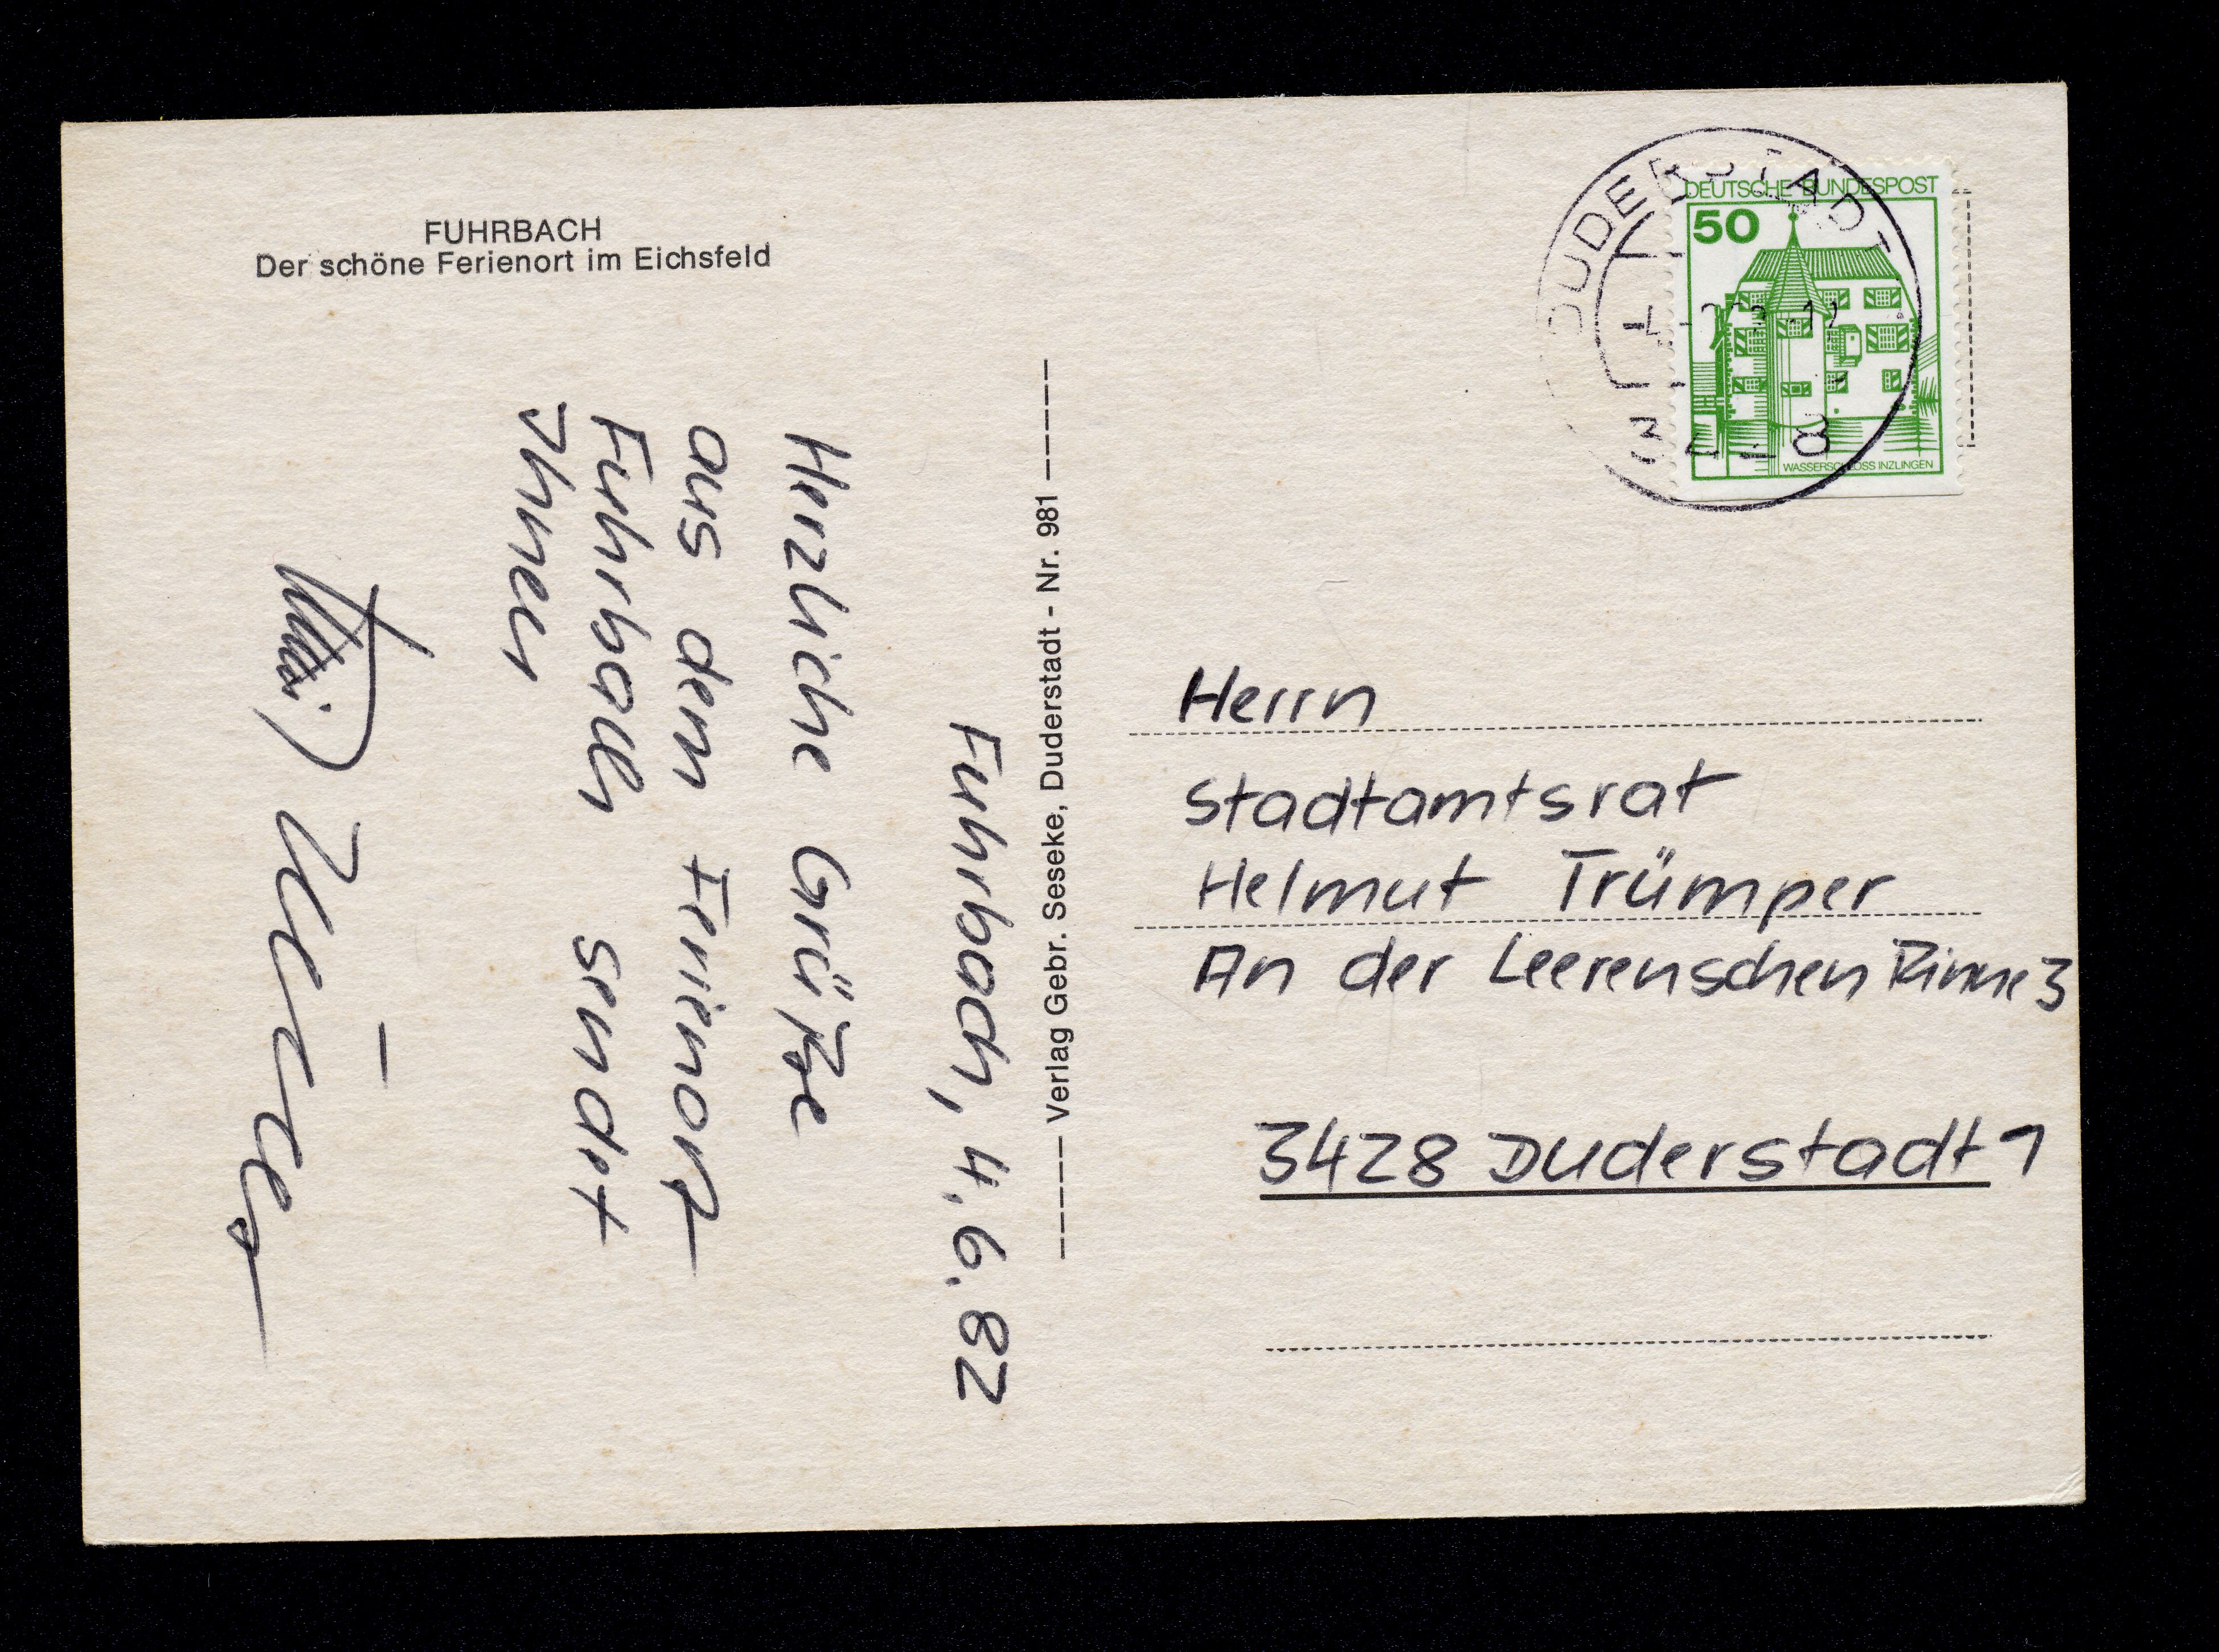 FUHRBACH
Der schöne Ferienort im Eichsfeld
Fuhrbach, 4.6.82
Herzliche Grüße
aus dem Ferienort
Fuhrbach sendet
Ihnen
Verlag Gebr. Seseke, Duderstadt - Nr. 981
DUDERSTADT
DEUTSCHE BUNDESPOST
50
WASSERSCHLOSS INZLINGEN
Herrn
Stadtamtsrat
Helmut Trümper
An der Leerenschen Rinne 3
3428 Duderstadt 1